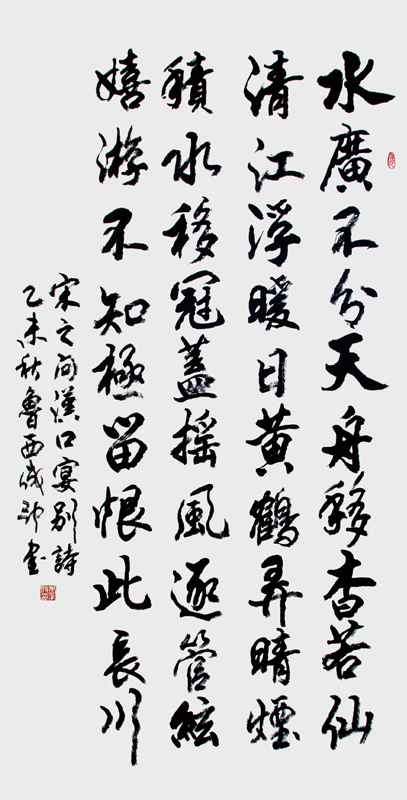 水廣不分天舟移杳若仙
清江浮暖日黄鶴弄晴煙
積水移冠蓋摇風逐管絃
嬉游不知極留恨此長川
宋之问漢口宴别詩
乙未秋魯西書